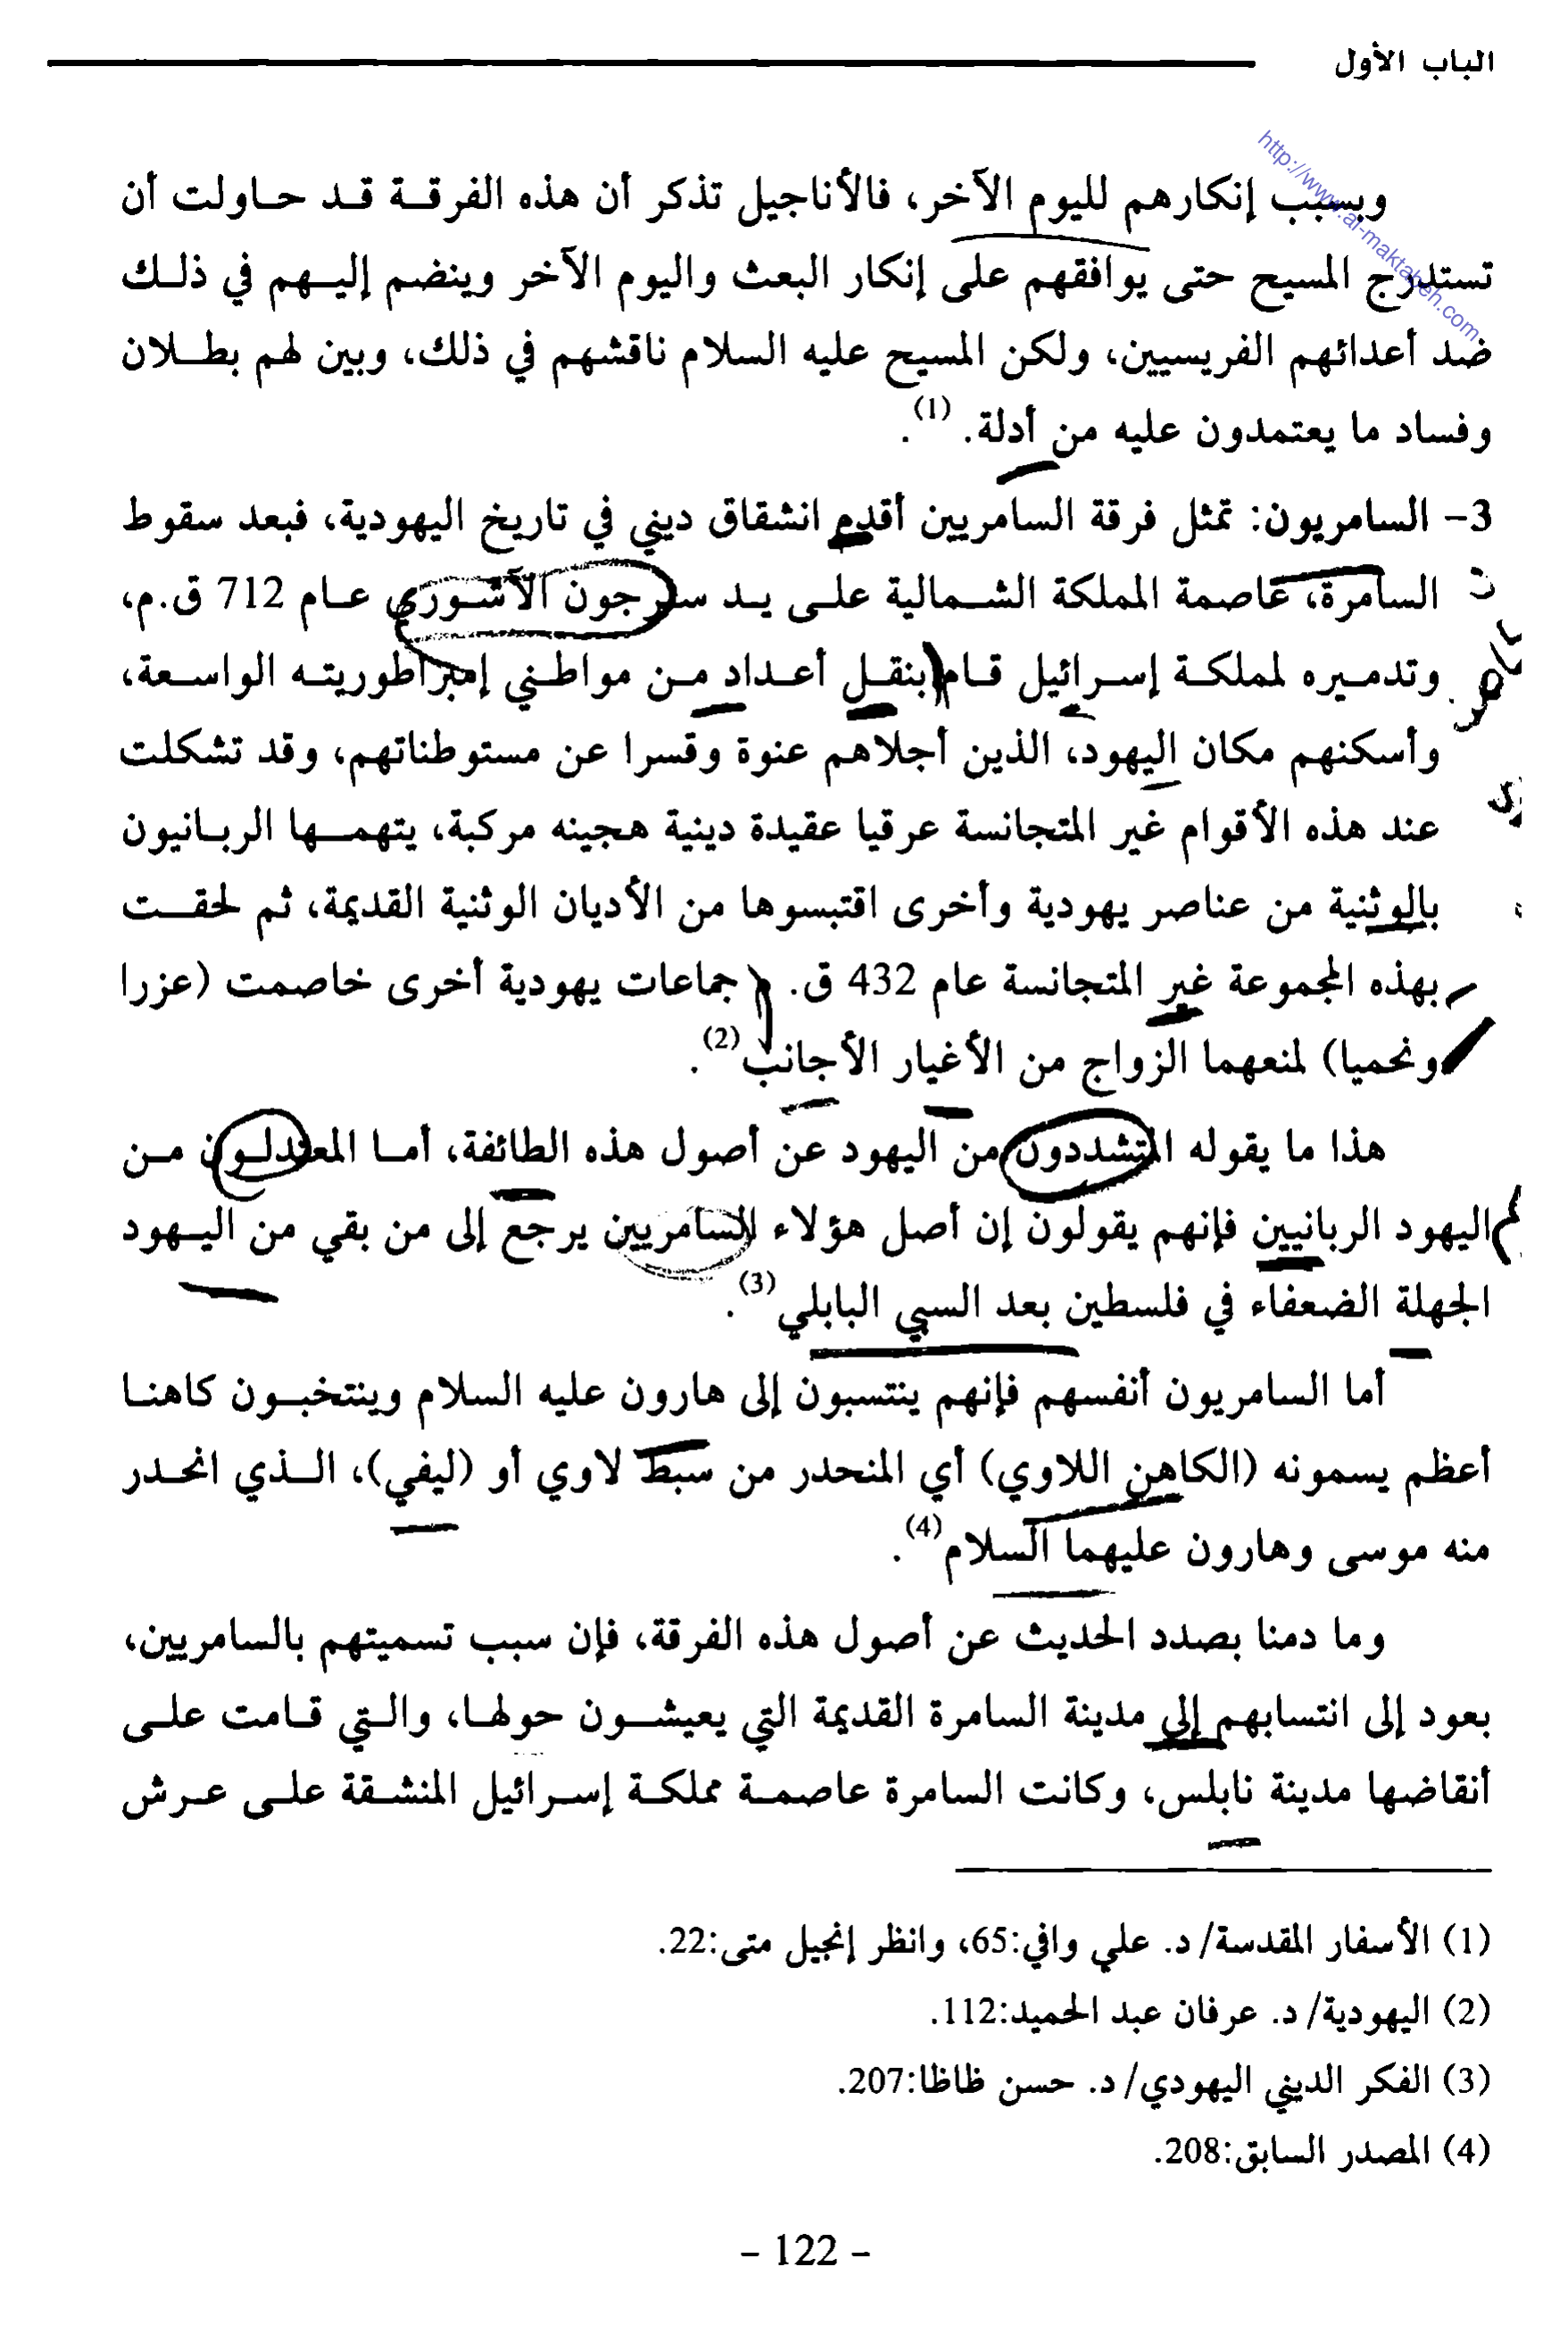 الباب الأول
http://www.al-maktabeh.com
وبسبب إنكارهم لليوم الآخر، فالأناجيل تذكر أن هذه الفرقة قد حاولت أن
تستدرج المسيح حتى يوافقهم على إنكار البعث واليوم الآخر وينضم إليهم في ذلك
ضد أعدائهم الفريسيين، ولكن المسيح عليه السلام ناقشهم في ذلك، وبين لهم بطلان
وفساد ما يعتمدون عليه من أدلة. (1).
3- السامريون: تمثل فرقة السامريين أقدم انشقاق ديني في تاريخ اليهودية، فبعد سقوط
السامرة، عاصمة المملكة الشمالية على يد سرجون الآشوري عام 712 ق.م،
وتدميره لمملكة إسرائيل قام بنقل أعداد من مواطني إمبراطوريته الواسعة،
وأسكنهم مكان اليهود، الذين أجلاهم عنوة وقسرا عن مستوطناتهم، وقد تشكلت
عند هذه الأقوام غير المتجانسة عرقيا عقيدة دينية هجينه مركبة، يتهمها الربانيون
بالوثنية من عناصر يهودية وأخرى اقتبسوها من الأديان الوثنية القديمة، ثم لحقت
بهذه المجموعة غير المتجانسة عام 432 ق. م جماعات يهودية أخرى خاصمت (عزرا
ونحميا) لمنعهما الزواج من الأغيار الأجانب(2).
هذا ما يقوله المتشددون من اليهود عن أصول هذه الطائفة، أما المعتدلون من
اليهود الربانيين فإنهم يقولون إن أصل هؤلاء السامريين يرجع إلى من بقي من اليهود
الجهلة الضعفاء في فلسطين بعد السبي البابلي(3).
أما السامريون أنفسهم فإنهم ينتسبون إلى هارون عليه السلام وينتخبون كاهنا
أعظم يسمونه (الكاهن اللاوي) أي المنحدر من سبط لاوي أو (ليفي)، الذي انحدر
منه موسى وهارون عليهما السلام(4).
وما دمنا بصدد الحديث عن أصول هذه الفرقة، فإن سبب تسميتهم بالسامريين،
بعود إلى انتسابهم إلى مدينة السامرة القديمة التي يعيشون حولها، والتي قامت على
أنقاضها مدينة نابلس، وكانت السامرة عاصمة مملكة إسرائيل المنشقة على عرش
(1) الأسفار المقدسة/ د. علي وافي:65، وانظر إنجيل متى:22.
(2) اليهودية/ د. عرفان عبد الحميد:112.
(3) الفكر الديني اليهودي/ د. حسن ظاظا:207.
(4) المصدر السابق:208.
- 122 -